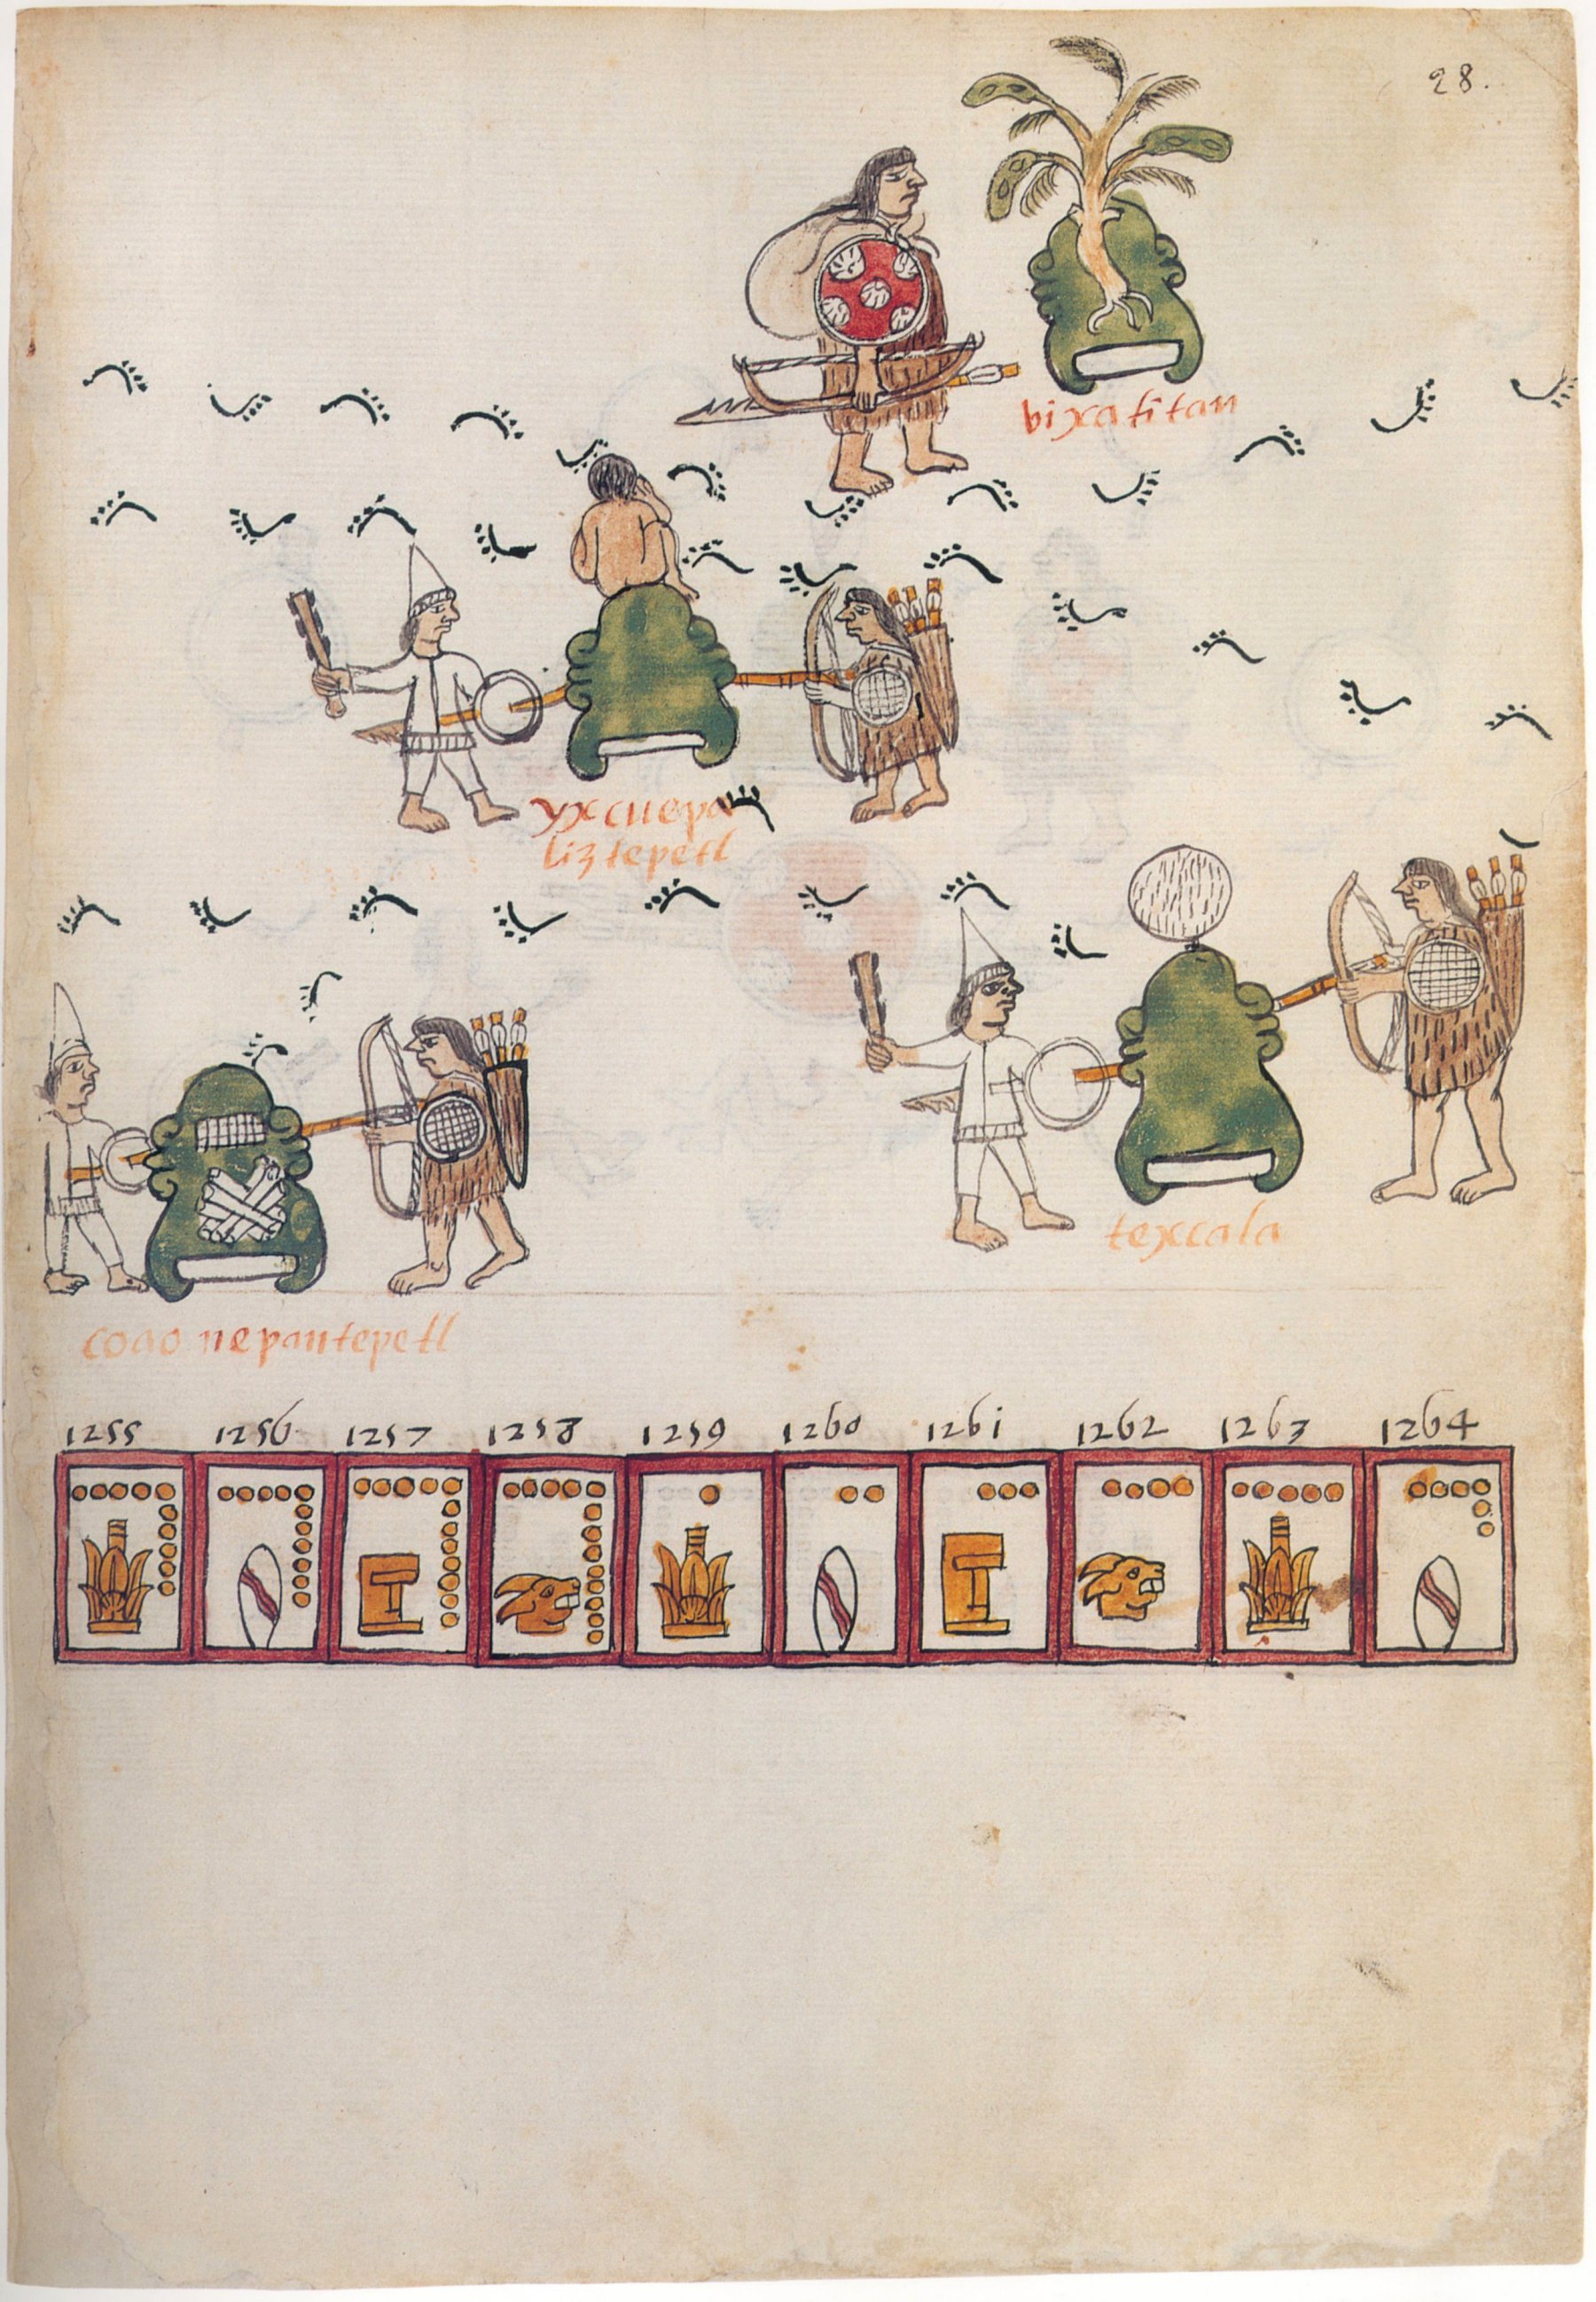 28.
bixatitan
yxcuepa
liztepetl
texcala
coao nepantepetl
1255 1256 1257 1258 1259 1260 1261 1262 1263 1264